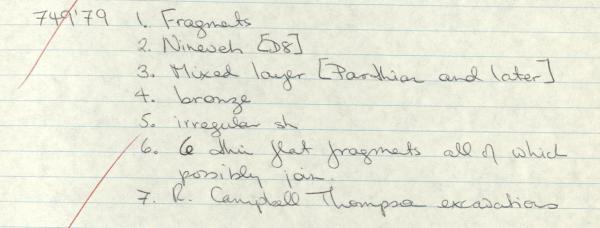 749'79 1. Fragments
2. Nineveh [D8]
3. Mixed layer [Parthian and later]
4. bronze
5. irregular sh
6. 6 thin flat fragments all of which
possibly join.
7. R. Campbell Thompson excavations